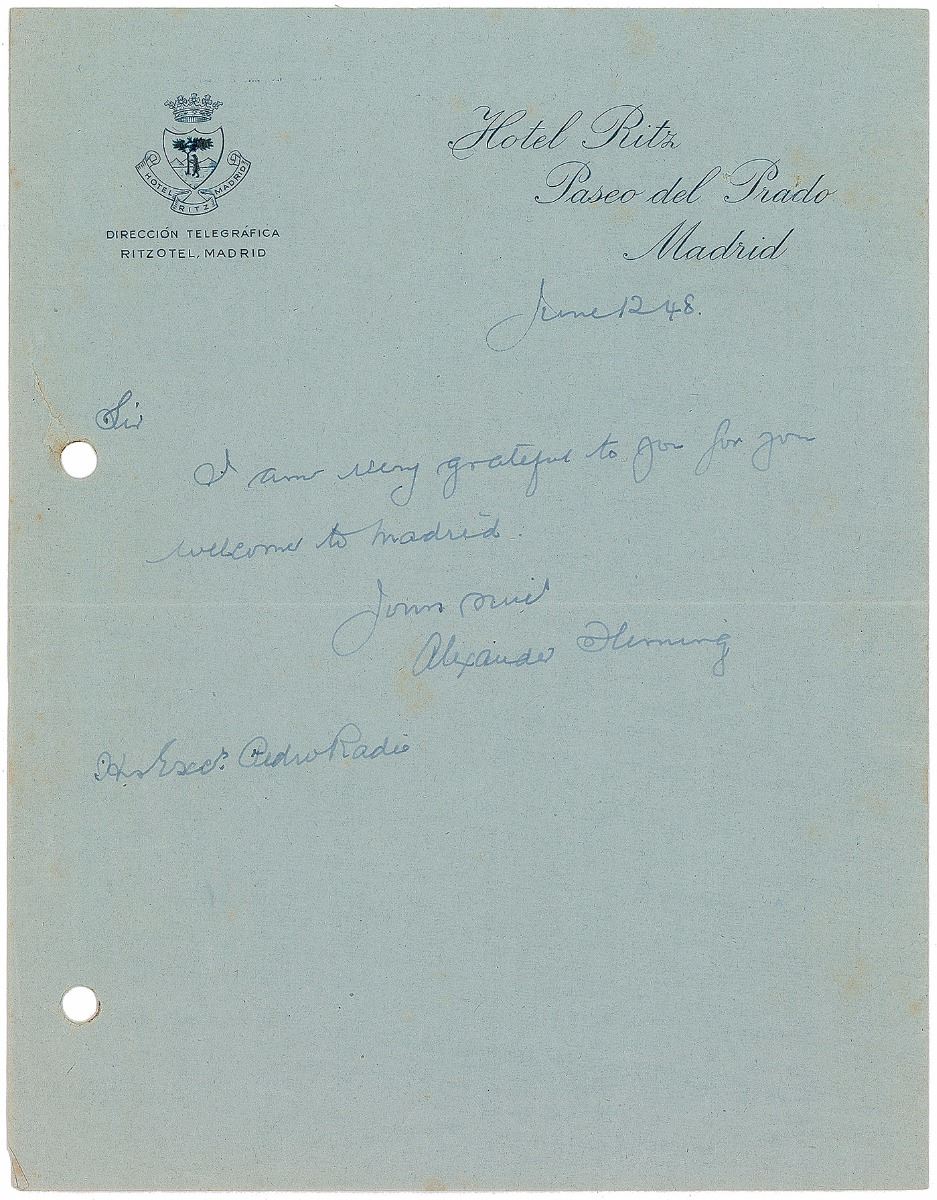 HOTEL RITZ MADRID
DIRECCIÓN TELEGRÁFICA
RITZOTEL, MADRID
Hotel Ritz
Paseo del Prado
Madrid
June 12 48.
Sir
I am very grateful to you for your
welcome to Madrid.
Yours
Alexander Fleming
His Excy. Pedro Radio